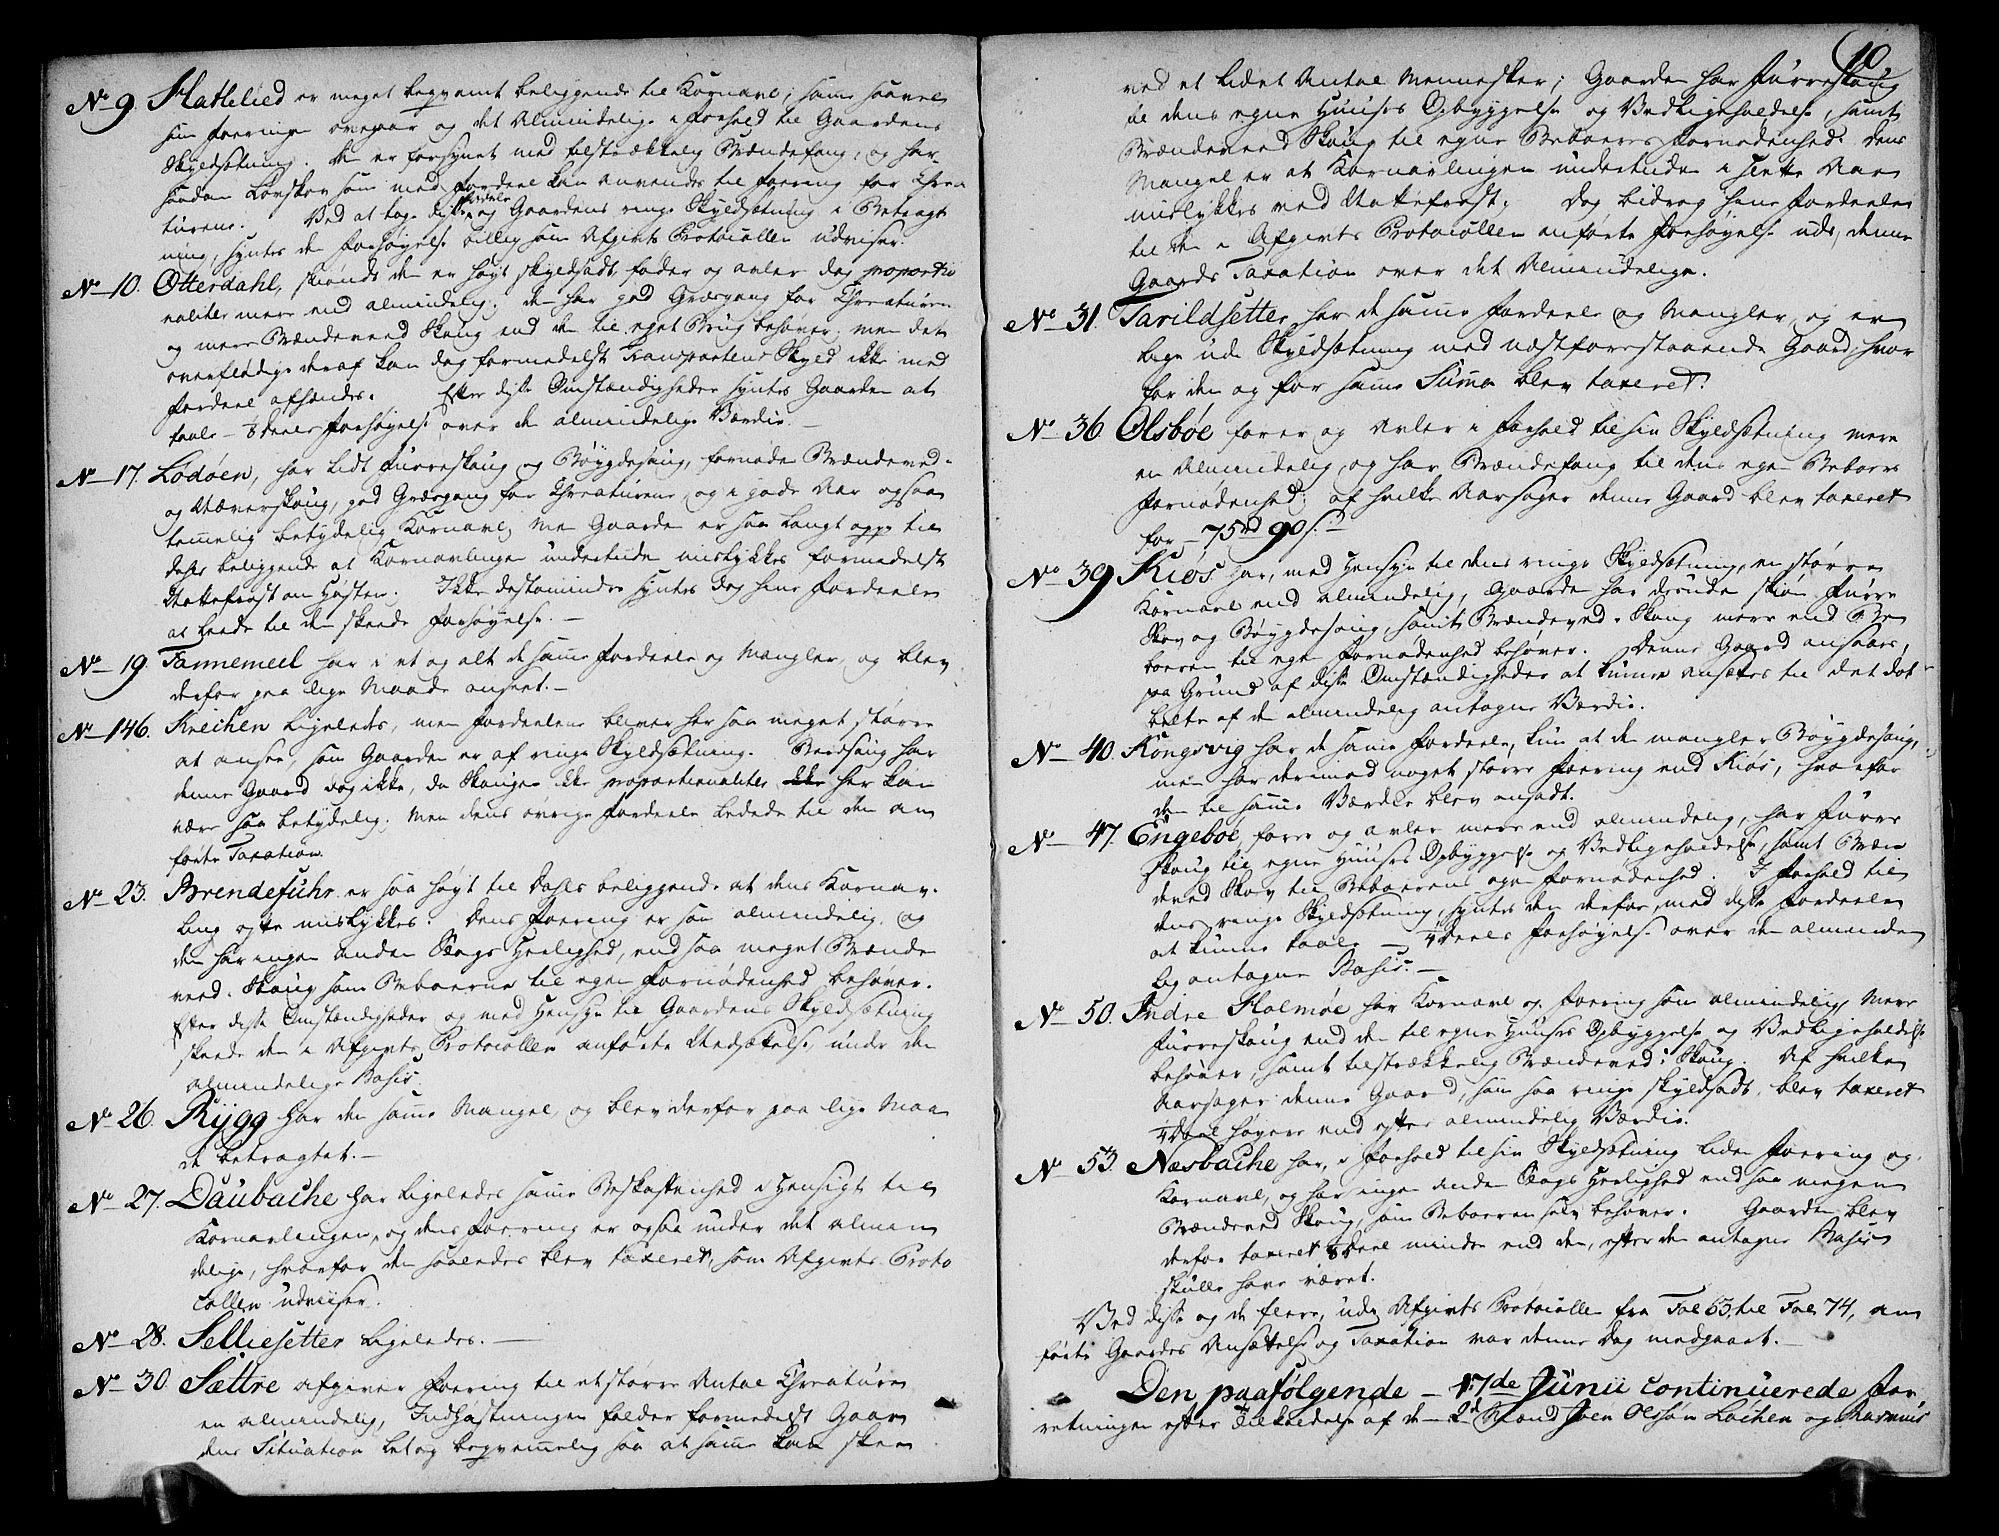 No 9. Hattelied er meget beqvemt beliggende til Kornavl; samme saavel
som foeringen overgaar og det Almindelige i forhold til Gaardens
Skyldsætning. Den er forsynet med tilstrækkelig Brændefang, og har
saadan Løvskov som med fordeel kan anvendes til foering for Chrea
turene. Ved at tage disse fordele og Gaardens ringe Skyldsætning i Betragt
ning, syntes den forhøyelse billig som Afgivts Protocollen udviser.
No 10. Otterdahl, skiøndt den er høyt skyldsadt, føder og avler dog proportio
naliter mere end almindelig; den har god Græsgang for Chreaturene
og mere Brændeveed Skoug end den til eget Brug behøver; men det
overflødige deraf kan dog formedelst Transportens Skyld ikke med
fordeel afhændes. Efter disse Omstændigheder syntes Gaarden at
taale 1/8 Deels forhøyelse over de almindelige Værdie.
No 17. Lødøen, har lidt furreskoug og Bøygdesaug, fornøden Brændeved-
og Næverskoug, god Græsgang for Chreaturene, og i gode Aar ogsaa
temmelig betydelig Kornavl; men Gaarden er saa langt opp til
Dahls beliggende at Kornavlingen undertiden mislykkes formedelst
Nattefrost om Høsten. Ikke destomindre syntes dog hine fordeele
at lede til den skeede forhøyelse.
No 19. Tannemeel har i et og alt de samme fordeele og Mangler, og blev
derfor paa lige Maade anseet.
No 146. Kreiken ligeledes, men fordeelene bliver her saa meget større
at ansee, som Gaarden er af ringe Skyldsætning. Bordsaug har
denne Gaard dog ikke, da Skougen ikke proportionaliter her kan
være saa betydelig; men dens øvrige fordeele ledede til den an
førte Taxation.
No 23. Brendefuhr er saa høyt til Dahls beliggende at dens Kornav-
ling ofte mislykkes. Dens foering er som almindelig, og
den har ingen anden Skougs Herlighed, end saa meget Brænde
veed Skoug som Beboerne til egen fornødenhed behøver.
Efter disse Omstændigheder og med Hensyn til Gaardens Skyldsætning
skeede den i Afgivts Protocollen anførte Nedsættelse, under den
almindelige Basis.
No 26. Rygg har den samme Mangel, og blev derfor paa lige Maa
de betragtet.
No 27. Daubache har ligeledes samme Beskaffenhed i Hensigt til
Kornavlingen, og dens foering er ogsaa under det almin
delige, hvorfor den saaledes blev taxeret, som Afgivts Proto
collen udviiser.
No 28. Selliesetter ligeledes.
No 30. Sættre afgiver foering til et større Antal Chreature
en almindelig, Indhøstningen falder formedelst Gaar
dens Situation belejg beqvemmelig saa at samme kan skee
10
ved et lidet Antal Mennesker; Gaarden har furreskoug
til dens egne Huuses Opbyggelse og Vedligeholdelse, samt
Brændeveed Skoug til egne Beboeres fornødenhed. Dens
Mangel er at Kornavlingen undertiden i slette Aar
mislykkes ved Nattefrost; Dog bidrog hine fordeele
til den i Afgivts Protocollen anførte forhøyelse ude, denne
Gaards Taxation over det Almindelige.
No 31. Tarildsetter har de samme fordeele og Mangler, og er
lige ude Skyldsætning med næstforestaaende Gaard, hvor
for den og for samme Summa blev taxeret.
No 36. Olsbøe forer og Avler i forhold til sin Skyldsætning mere
en Almindelig, og har Brændefang til dens egen Beboeres
fornødenhed; af hvilke Aarsager denne Gaard blev taxeret
for 75 rd 90 s.
No 39 Kiøs har, med Hensyn til dens ringe Skyldsætning, en større
Kornavl end almindelig, Gaarden har desuden skiøn furre
Skov og Bøygdesaug, samt Brændeved Skoug mere end Be
boeren til egen fornødenhed behøver. Denne Gaard ansaaes,
paa Grund af disse Omstændigheder at kunne ansættes til det dob
belte af den almindelig antagne Værdie.
No 40. Kongsvig har de samme fordeele, kun at den mangler Bøygdesaug,
men har derimod noget større foering end Kiøs, hvorfor
den til samme Værdie blev ansadt.
No 47. Engebøe, forer og avler mere end almindelig, har furre
skoug til egne Huuses Opbyggelse og Vedligeholdelse, samt Bræn
deved Skov til Beboerens egen fornødenhed. I forhold til
dens ringe Skyldsætning, syntes den derfor med disse fordeele
at kunne taale 1/4 Deels forhøyelse over den alminde
lig antagne Basis.
No 50. Indre Holmøe har Kornavl og foering som almindelig, mere
furreskoug end den til egne Huuses Opbyggelse og Vedligeholdelse
behøver, samt tilstrækkelig Brændeved Skoug. Af hvilke
Aarsager denne Gaard, som saa ringe skyldsadt, blev taxeret
1/4 Deel høyere end efter almindelig Værdie.
No 53. Næsbache har, i forhold til sin Skyldsætning liden foering og
Kornavl, og har ingen anden Skougs Herlighed end saa megen
Brændeveed Skoug, som Beboeren selv behøver. Gaarden blev
derfor taxeret 1/8 Deel mindre end den, efter den antagne Basis
skulle have været.
Ved disse og de fleere, udi Afgivts Protocollen fra Fol 63 til Fol 74, an
førte Gaardes Ansættelse og Taxation var denne Dag medgaaet.
Den paafølgende 17de Junii continuerede for
retningen efter Tilkaldelse af de 2de Mænd Joen Olsøn Løchen og Rasmus